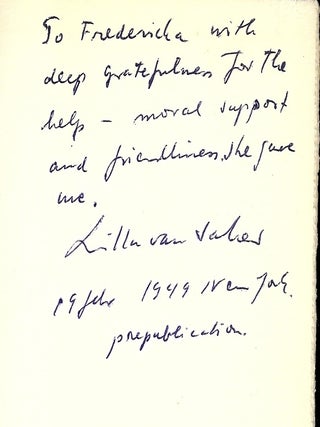 To Fredericka with
deep gratefulness for the
help - moral support
and friendliness she gave
me.
Lilla van Saher
19 Febr 1949 New York.
prepublication.